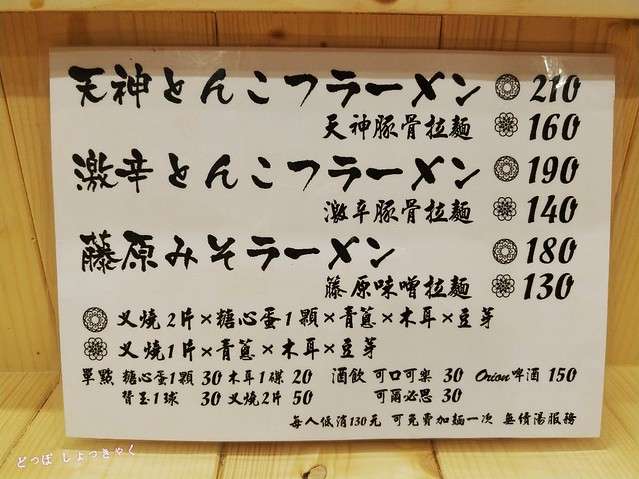 天神とんこつラーメン 210
天神豚骨拉麵 160
激辛とんこつラーメン 190
激辛豚骨拉麵 140
藤原みそラーメン 180
藤原味噌拉麵 130
叉燒2片×糖心蛋1顆×青蔥×木耳×豆芽
叉燒1片×青蔥×木耳×豆芽
單點 糖心蛋1顆 30 木耳1碟 20 酒飲 可口可樂 30 Orion啤酒 150
替玉1球 30 叉燒2片 50 可爾必思 30
每人低消130元 可免費加麵一次 無續湯服務
どっぽ しょっきゃく